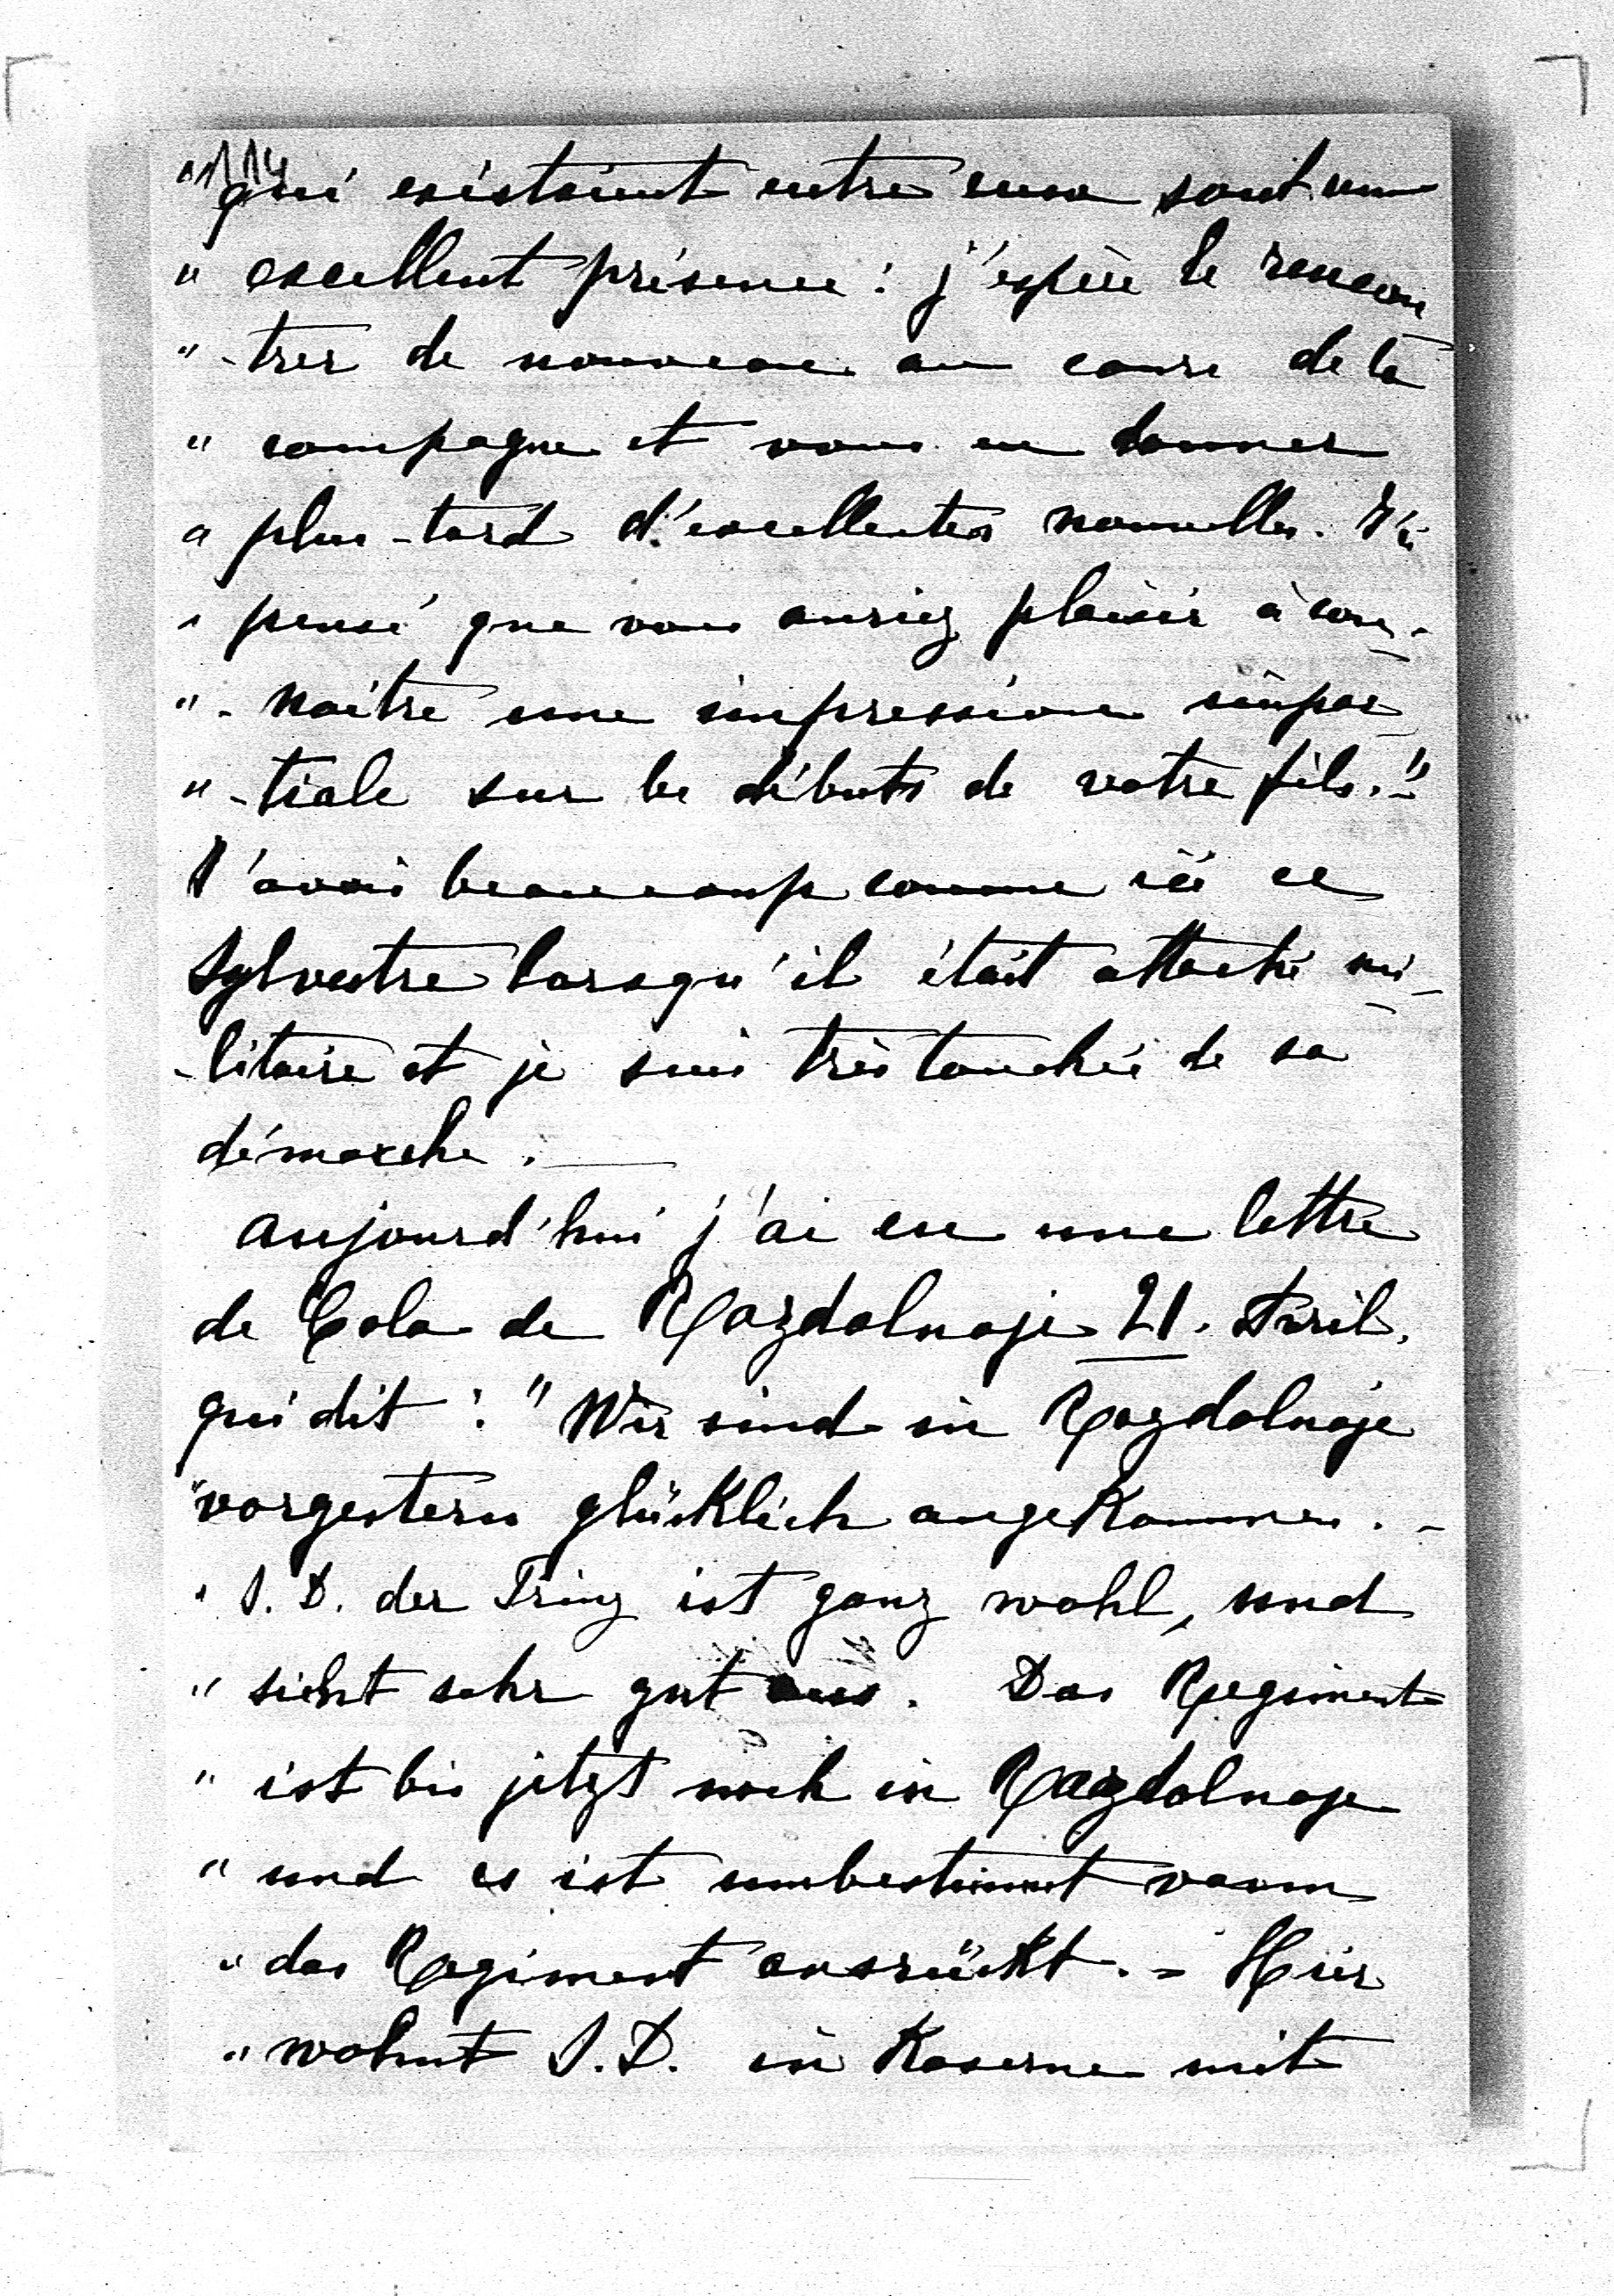 1114
"qui existaient entre eux sont un
" excellent présence : j'espère le rencon
" -trer de nouveau au cours de la
" campagne et vous en donner
" plus-tard d'excellentes nouvelles. J'ai
" pensé que vous auriez plaisir à con-
" -naître une impression impar
" -tiale sur les débuts de votre fils."
J'avais beaucoup connu ici ce
Sylvestre lorsqu'il était attaché mi-
-litaire et je suis très touchée de sa
démarche. —
Aujourd'hui j'ai eu une lettre
de Cola de Razdolnoje 21. Avril.
qui dit : "Wir sind in Razdolnoje
"vorgestern glücklich angekommen. -
" S. D. der Prinz ist ganz wohl, und
" sieht sehr gut aus. Das Regiment
" ist bis jetzt noch in Razdolnoje
" und es ist unbestimmt wann
" das Regiment ausrückt. - Hier
" wohnt S. D. in Kaserne mit